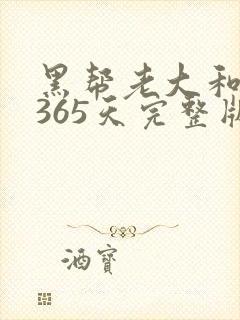 黑帮老大和
365天完整版
酒窝